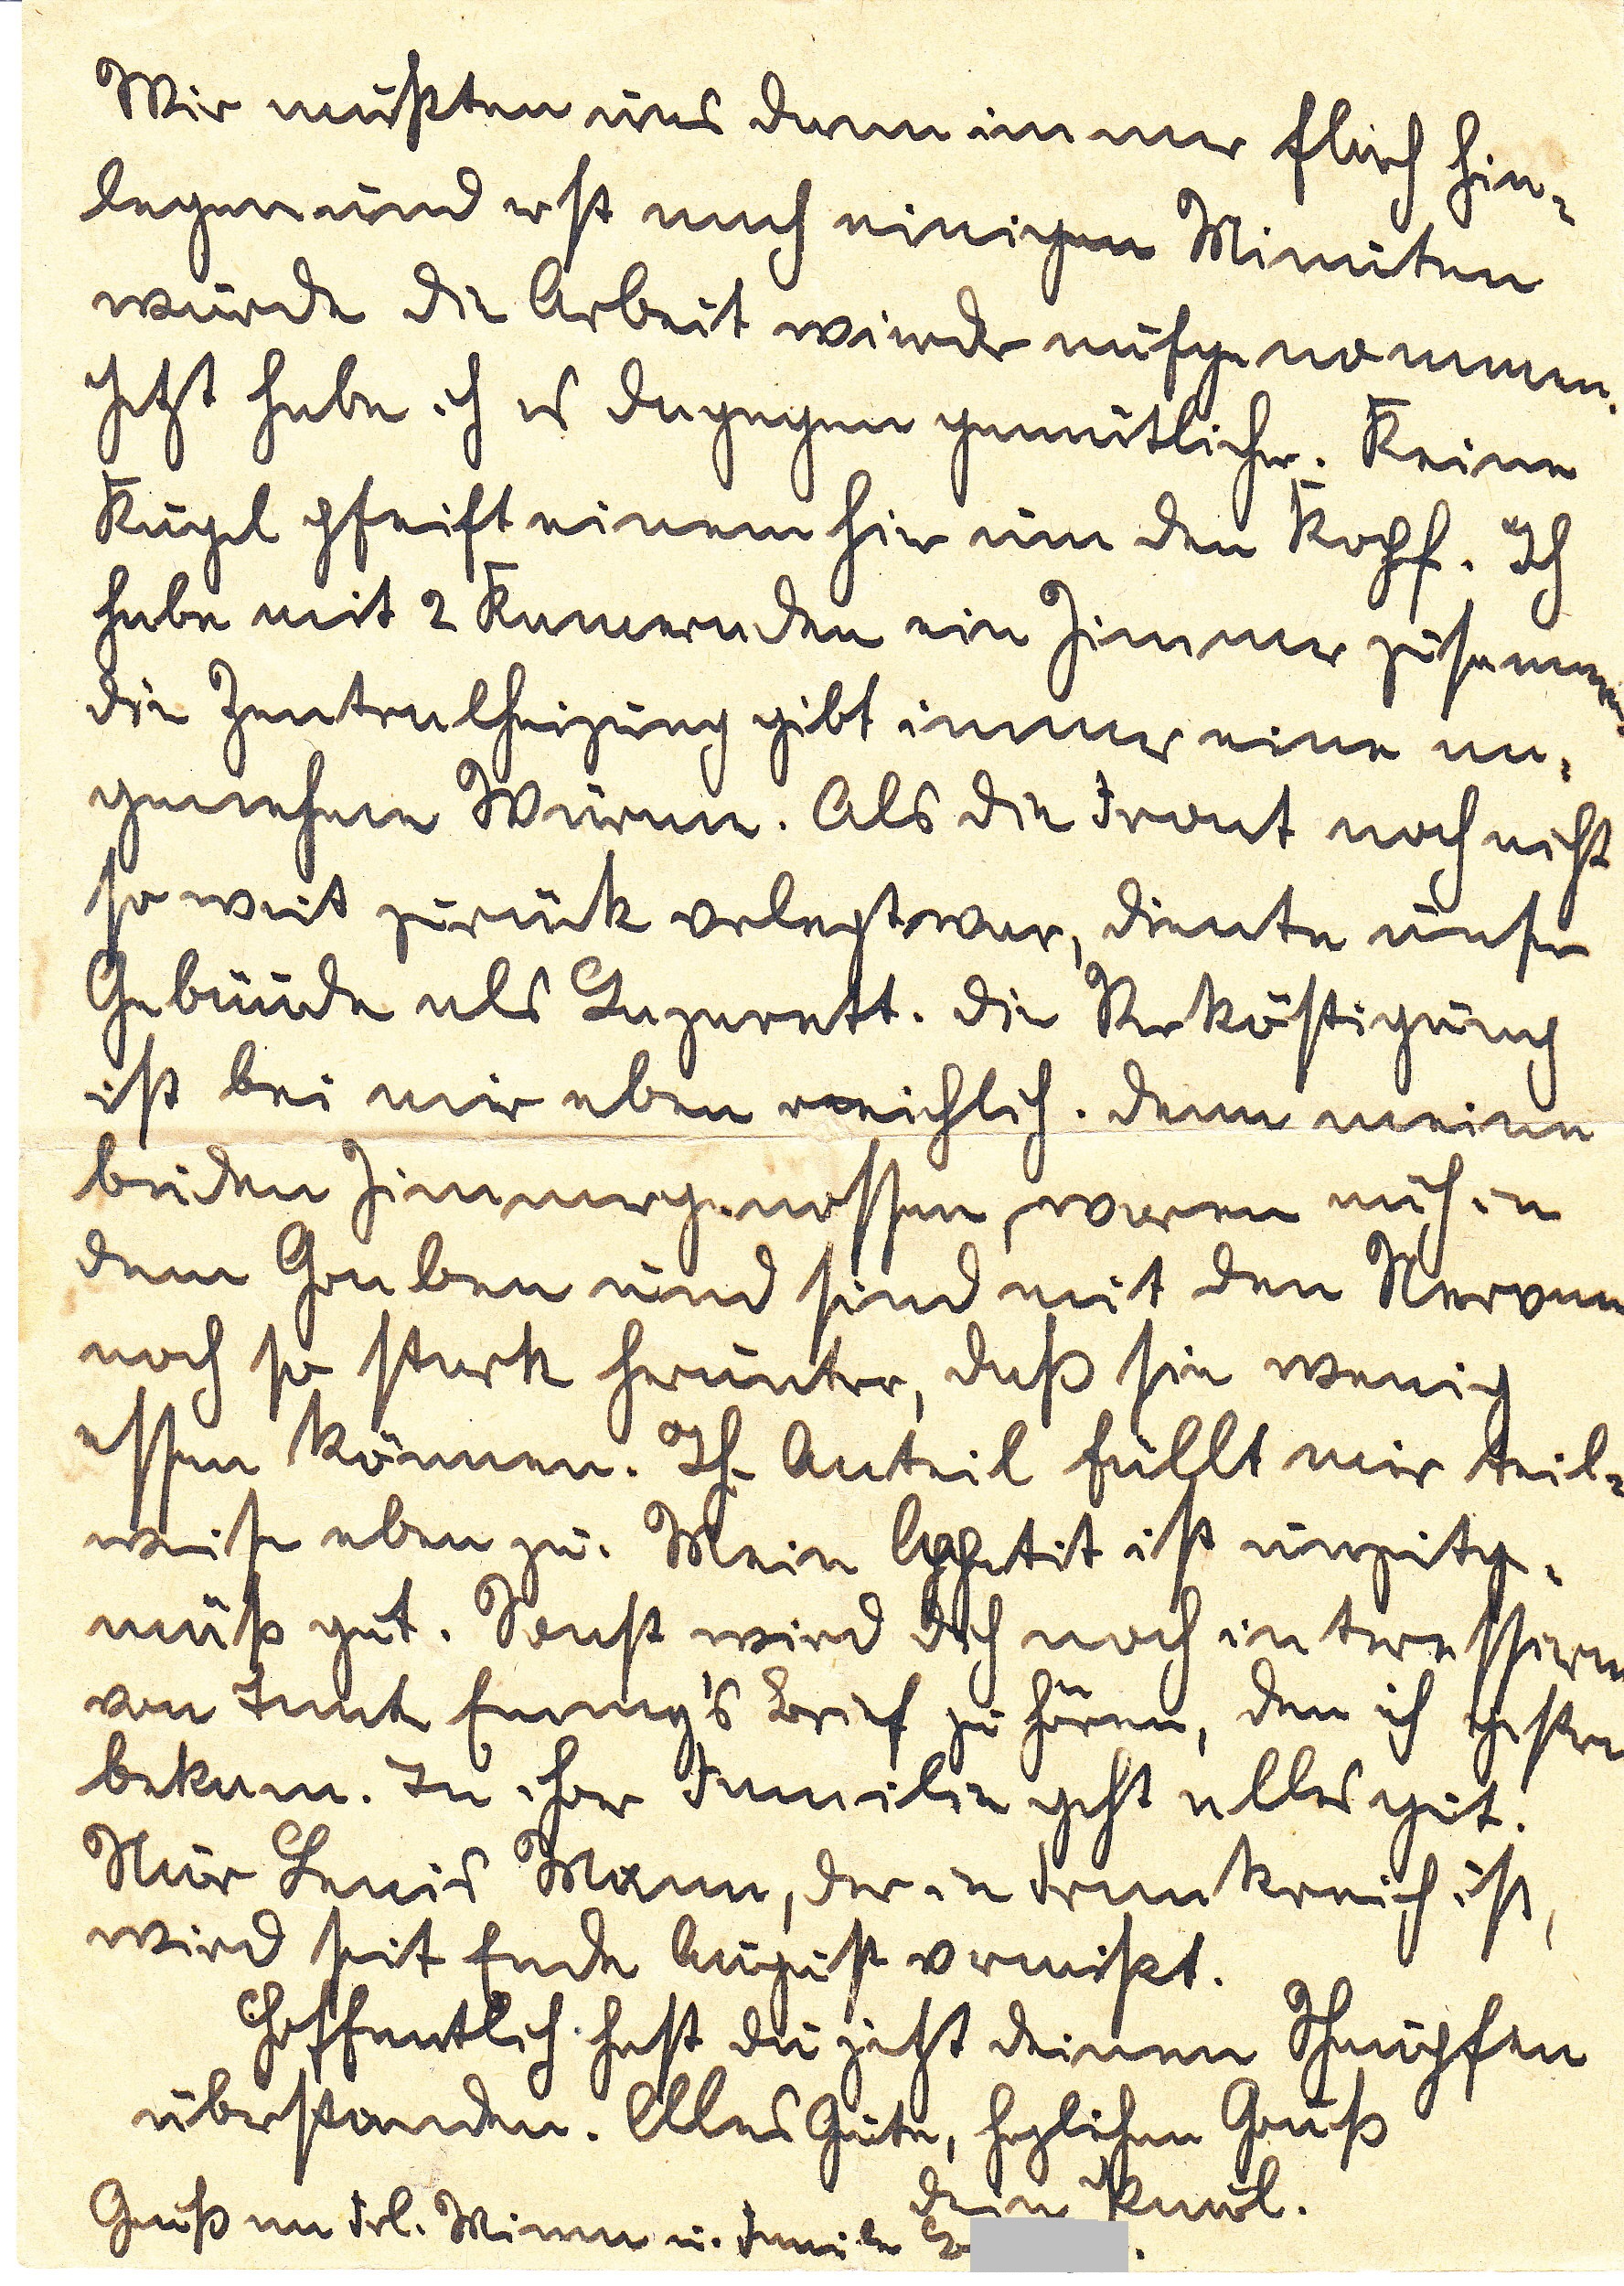 Wir mußten uns dann immer flach hin-
legen und erst nach einigen Minuten
wurde die Arbeit wieder aufgenommen.
Jetzt habe ich es dagegen gemütlicher. Keine
Kugel pfeift einem hier um den Kopf. Ich
habe mit 2 Kameraden ein Zimmer zusammen,
die Zentralheizung gibt immer eine an-
genehme Wärme. Als die Front noch nicht
so weit zurück verlegt war, diente unser
Gebäude als Lazarett. Die Beköstigung
ist bei mir eben reichlich. Denn meine
beiden Zimmergenossen, waren auch in
dem Graben und sind mit den Nerven
noch so stark herunter, daß sie wenig
essen können. Ihr Anteil fällt mir teil-
weise eben zu. Mein Appetit ist unzeitge-
mäß gut. Sonst wird dich noch interessieren
von Tante Emmy's Brief zu hören, den ich gestern
bekam. In ihrer Familie geht alles gut.
Nur Lenis Mann, der in Frankreich ist,
wird seit Ende August vermißt.
Hoffentlich hast du jetzt deinen Schnupfen
überstanden. Alles Gute, herzlichen Gruß
dein
Gruß an Frl. Minna u. Familie